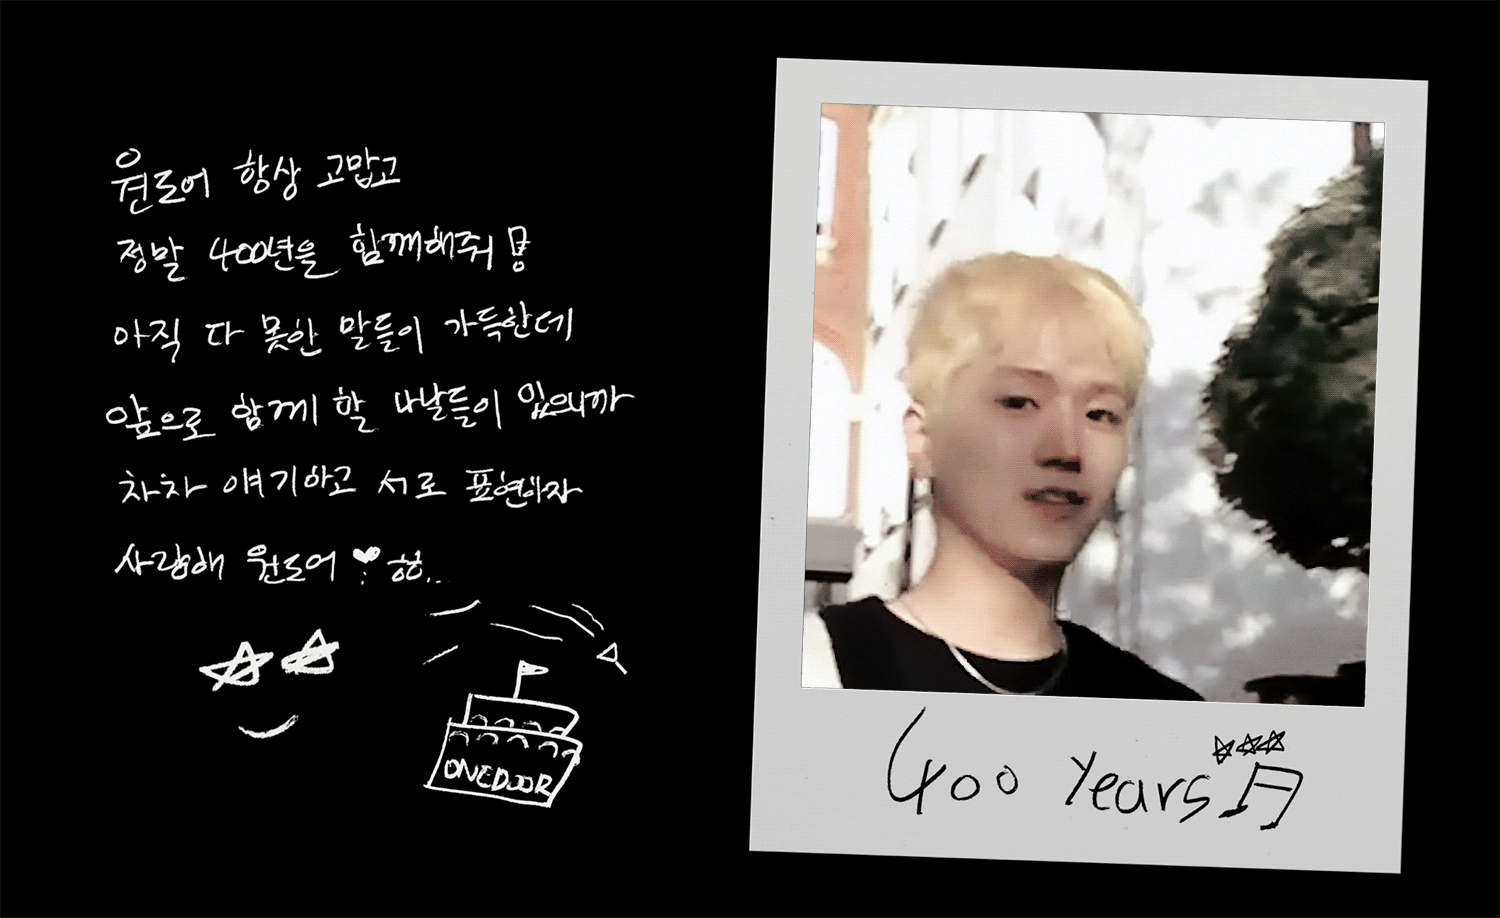 원도어 항상 고맙고
정말 400년을 함께해줘
아직 다 못한 말들이 가득한데
앞으로 함께 할 나날들이 있으니까
차차 얘기하고 서로 표현하자
사랑해 원도어 ♥
ONEDOOR
400 Years